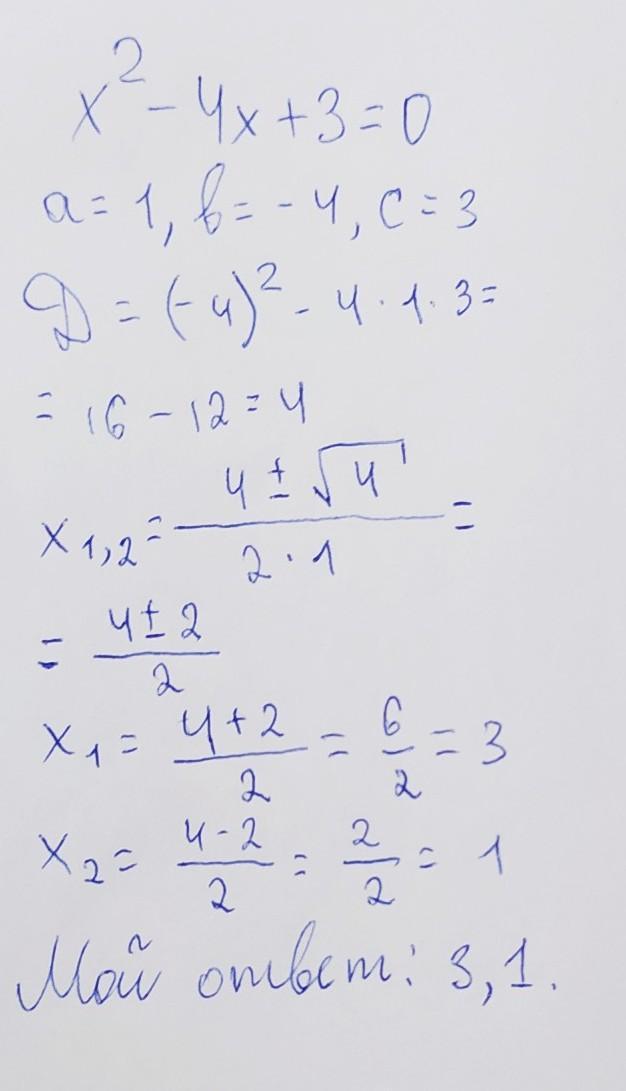 x² - 4x + 3 = 0
a = 1, b = - 4, c = 3
D = (- 4)² - 4 · 1 · 3 =
= 16 - 12 = 4
x₁,₂ = (4 ± √4) / (2 · 1) =
= (4 ± 2) / 2
x₁ = (4 + 2) / 2 = 6 / 2 = 3
x₂ = (4 - 2) / 2 = 2 / 2 = 1
Мой ответ: 3, 1.